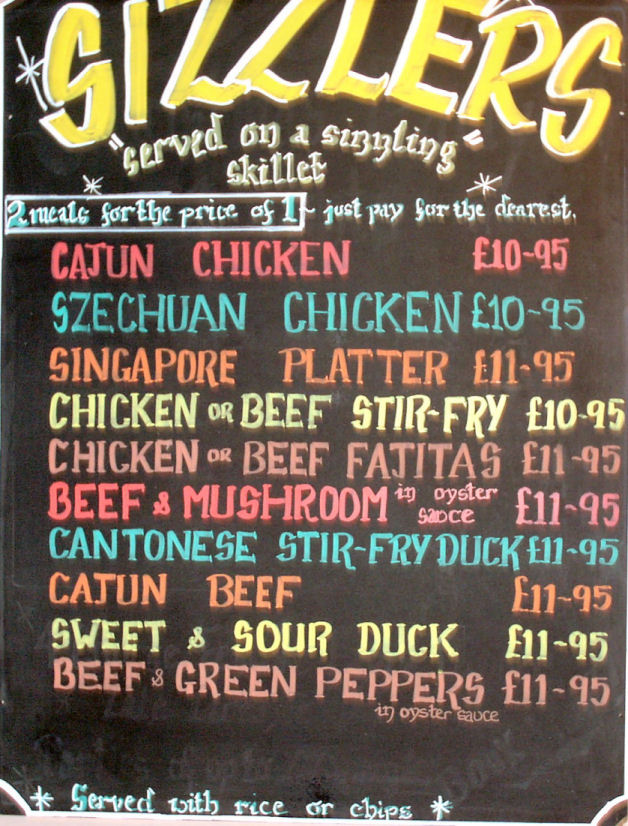 SIZZLERS
"served on a sizzling"
skillet
2 meals for the price of 1 - just pay for the dearest.
CAJUN CHICKEN £10-95
SZECHUAN CHICKEN £10-95
SINGAPORE PLATTER £11-95
CHICKEN OR BEEF STIR-FRY £10-95
CHICKEN OR BEEF FATITAS £11-95
BEEF & MUSHROOM in oyster sauce £11-95
CANTONESE STIR-FRY DUCK £11-95
CAJUN BEEF £11-95
SWEET & SOUR DUCK £11-95
BEEF & GREEN PEPPERS £11-95
in oyster sauce
* Served with rice or chips *